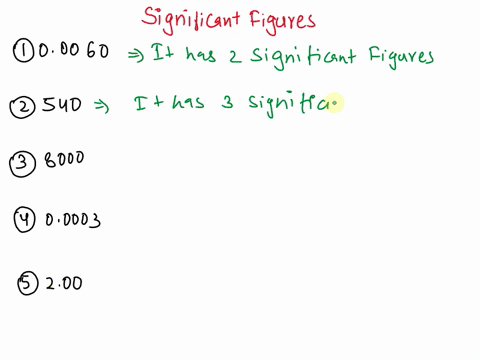 Significant Figures
① 0.0060 ⇒ It has 2 Significant Figures
② 540 ⇒ It has 3 Significa
③ 8000
④ 0.0003
⑤ 2.00